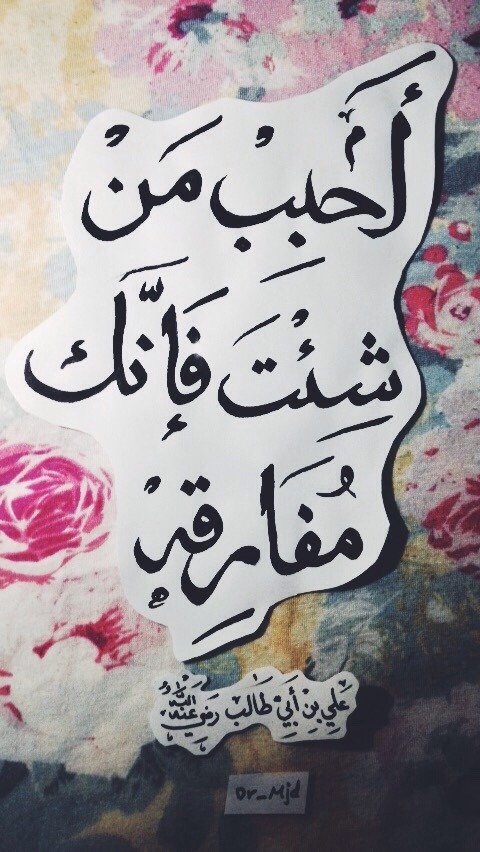 أَحْبِبْ مَنْ
شِئْتَ فَإِنَّكَ
مُفَارِقِهْ
عَلِي بِن أَبِيْ طَالب رَضِيَ اللَّهُ عَنْهُ
Dr_Mjd